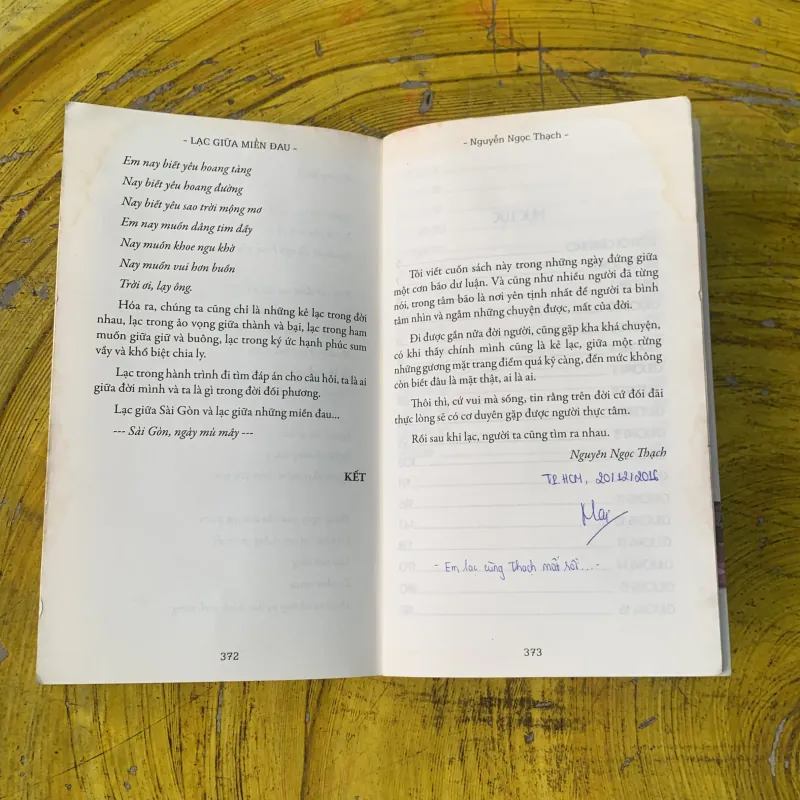 - LẠC GIỮA MIỀN ĐAU -
Em nay biết yêu hoang tàng
Nay biết yêu hoang đường
Nay biết yêu sao trời mộng mơ
Em nay muốn dâng tim đầy
Nay muốn khoe ngu khờ
Nay muốn vui hơn buồn
Trời ơi, lạy ông.
Hóa ra, chúng ta cũng chỉ là những kẻ lạc trong đời
nhau, lạc trong ảo vọng giữa thành và bại, lạc trong ham
muốn giữa giữ và buông, lạc trong ký ức hạnh phúc sum
vầy và khổ biệt chia ly.
Lạc trong hành trình đi tìm đáp án cho câu hỏi, ta là ai
giữa đời mình và ta là gì trong đời đối phương.
Lạc giữa Sài Gòn và lạc giữa những miền đau...
--- Sài Gòn, ngày mù mây ---
KẾT
372
- Nguyễn Ngọc Thạch -
Tôi viết cuốn sách này trong những ngày đứng giữa
một cơn bão dư luận. Và cũng như nhiều người đã từng
nói, trong tâm bão là nơi yên tịnh nhất để người ta bình
tâm nhìn và ngẫm những chuyện được, mất của đời.
Đi được gần nửa đời người, cũng gặp kha khá chuyện,
có khi thấy chính mình cũng là kẻ lạc, giữa một rừng
những gương mặt trang điểm quá kỹ càng, đến mức không
còn biết đâu là mặt thật, ai là ai.
Thôi thì, cứ vui mà sống, tin rằng trên đời cứ đối đãi
thực lòng sẽ có cơ duyên gặp được người thực tâm.
Rồi sau khi lạc, người ta cũng tìm ra nhau.
Nguyễn Ngọc Thạch
TP.HCM, 20/12/2016
May
- Em lạc cùng Thạch mất rồi...-
373